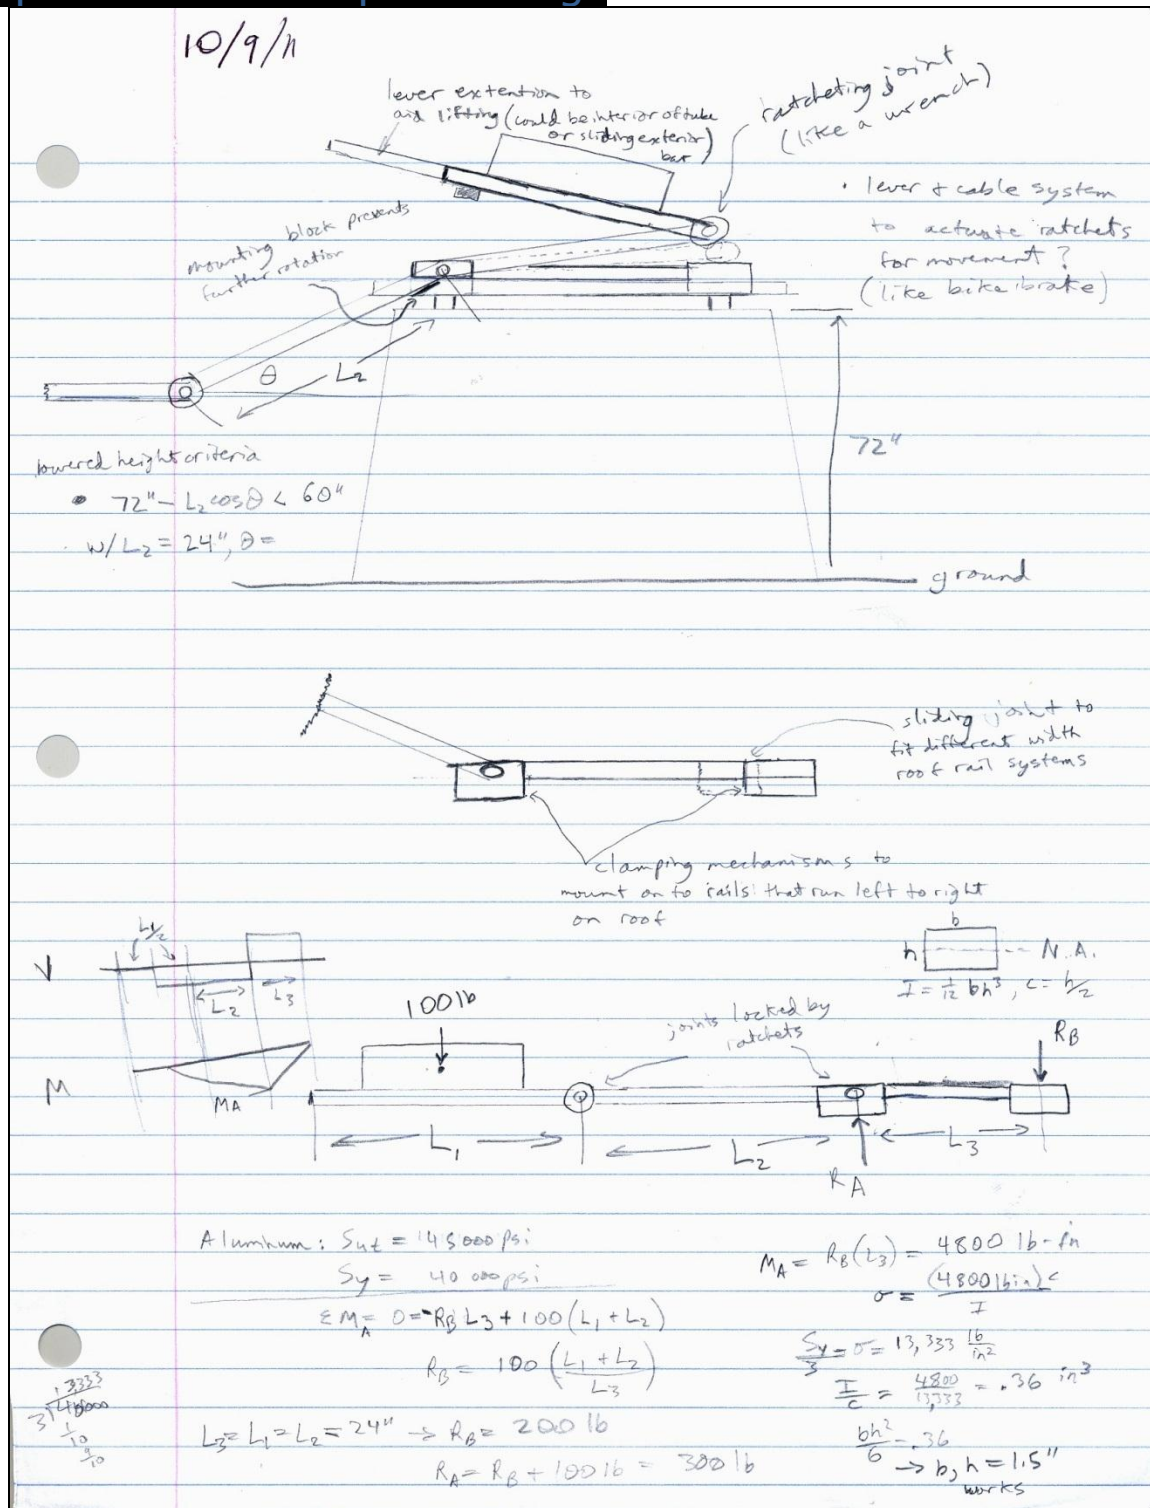 10/9/11
lever extention to
aid lifting (could be interior of tube
or sliding exterior)
bar
ratcheting joint
(like a wrench)
• lever & cable system
to actuate ratchets
for movement?
(like bike brake)
mounting block prevents
further rotation
θ
L2
72"
lowered height criteria
• 72" - L2 cosθ < 60"
w/ L2 = 24", θ =
ground
sliding joint to
fit different width
roof rail systems
clamping mechanisms to
mount on to rails that run left to right
on roof
L1/2
V
L2
L3
b
h
N.A.
I = 1/12 bh³, c = h/2
100 lb
joints locked by
ratchets
RB
M
MA
L1
L2
L3
RA
Aluminum: Sut = 45000 psi
Sy = 40 000 psi
ΣMA = 0 = -RB L3 + 100 (L1 + L2)
RB = 100 (L1 + L2 / L3)
L3 = L1 = L2 = 24" → RB = 200 lb
RA = RB + 100 lb = 300 lb
MA = RB(L3) = 4800 lb-in
σ = (4800 lb in) c / I
Sy/3 = σ = 13,333 lb/in²
I/c = 4800/13,333 = .36 in³
bh²/6 = .36
→ b, h = 1.5"
works
13333
3 40000
10